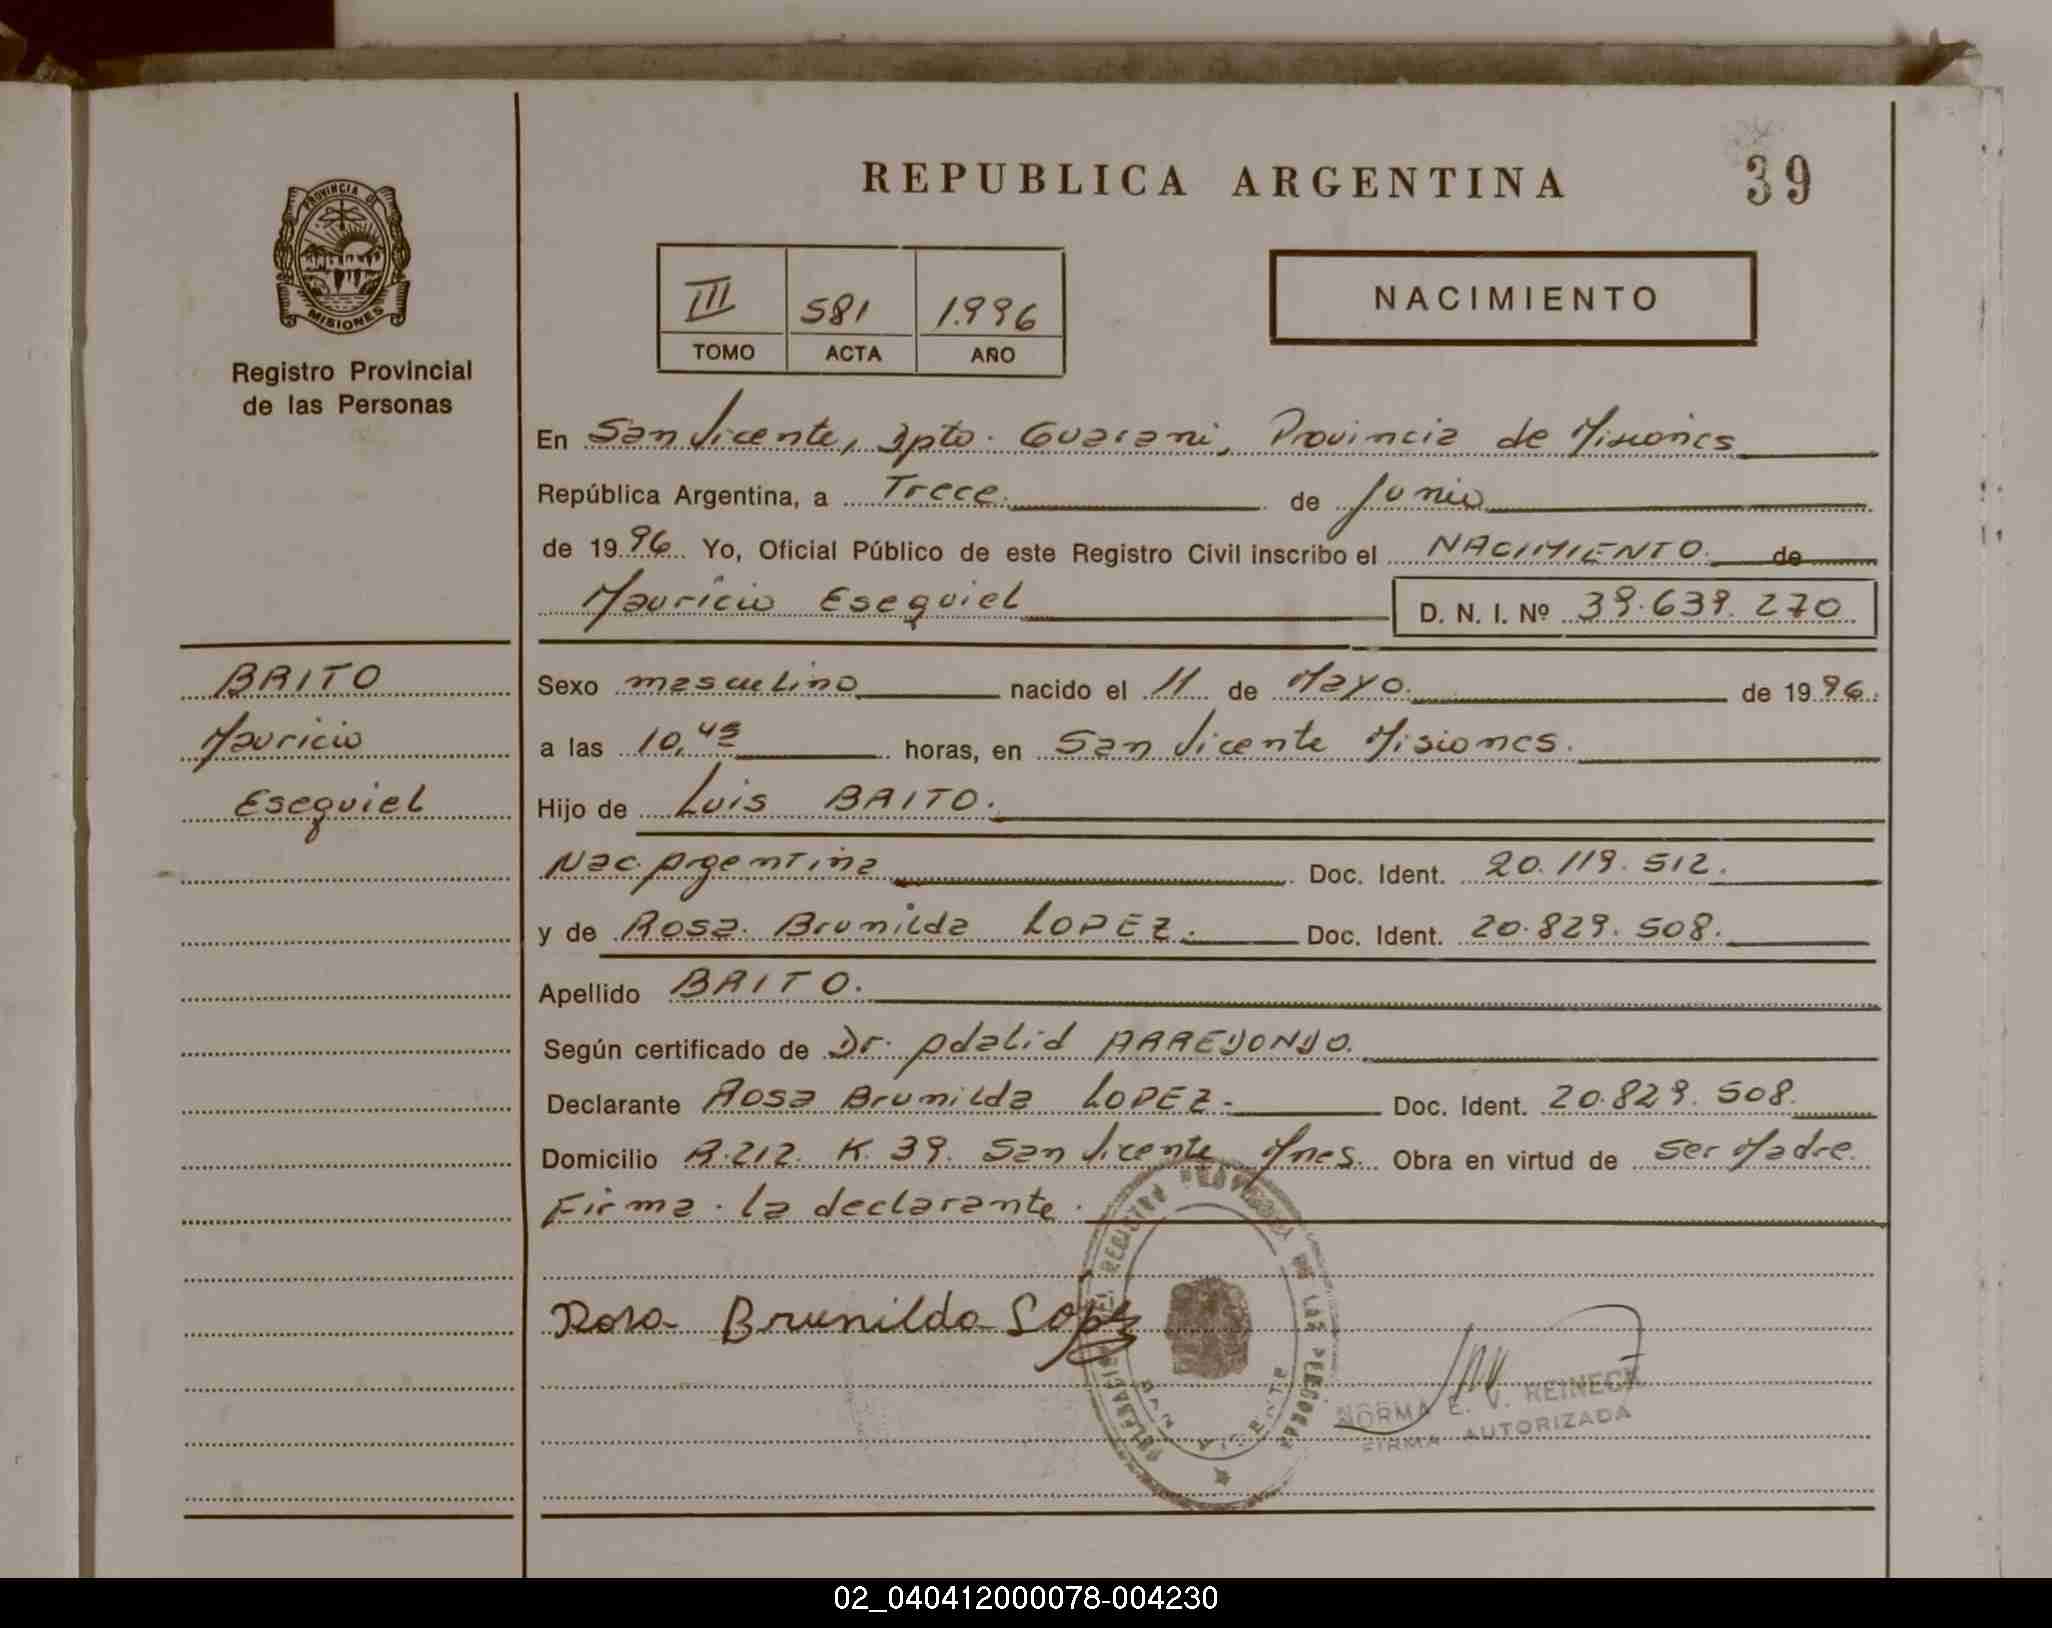 REPUBLICA ARGENTINA
39
PROVINCIA DE
MISIONES
Registro Provincial
de las Personas
III 581 1.996
TOMO ACTA AÑO
NACIMIENTO
En San Vicente, Dpto. Guarani, Provincia de Misiones
República Argentina, a Trece. de Junio
de 1996 Yo, Oficial Público de este Registro Civil inscribo el NACIMIENTO. de
Mauricio Esequiel D. N. I. Nº 39.639.270
BRITO
Mauricio
Esequiel
Sexo masculino nacido el 11 de Mayo. de 1996.
a las 10,45 horas, en San Vicente Misiones.
Hijo de Luis BRITO.
Nac. Argentina Doc. Ident. 20.119.512.
y de Rosa Brunilda LOPEZ. Doc. Ident. 20.829.508.
Apellido BRITO.
Según certificado de Dr. Adalid ARREDONDO.
Declarante Rosa Brunilda LOPEZ. Doc. Ident. 20.829.508.
Domicilio R.212. K. 39. San Vicente Mnes. Obra en virtud de ser Madre.
Firma la declarante.
Rosa Brunilda Lopez
DELEGACION DEL REGISTRO PROVINCIAL DE LAS PERSONAS
SAN VICENTE
NORMA E. V. REINECK
FIRMA AUTORIZADA
02_040412000078-004230